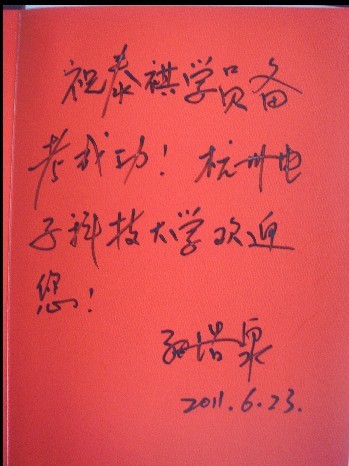 祝泰祺学员备
考成功！杭州电
子科技大学欢迎
您！
孙浩泉
2011.6.23.